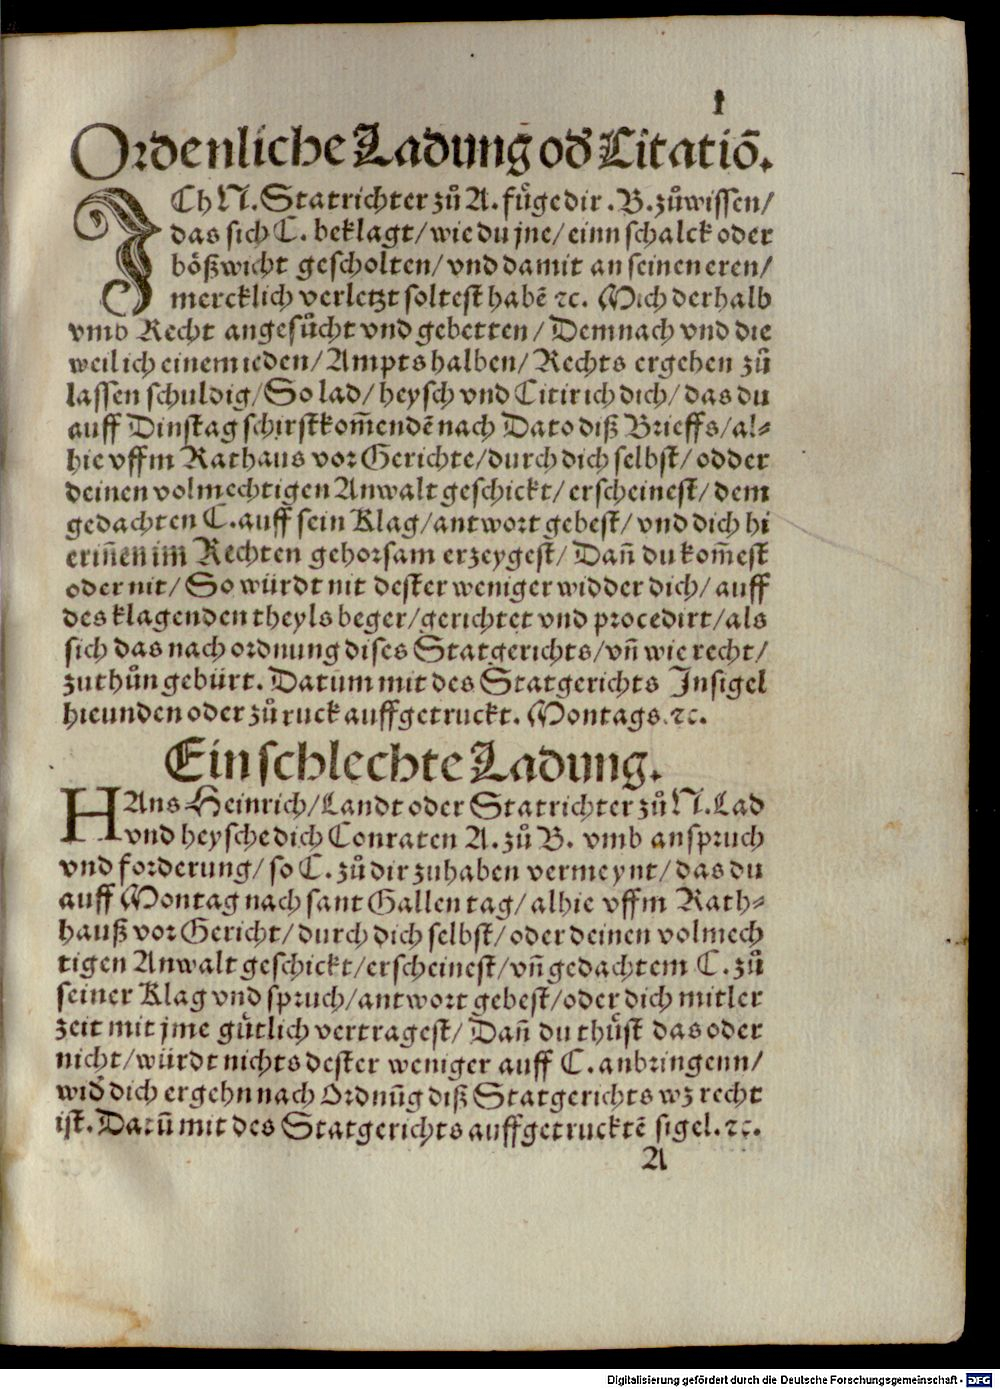 1
Ordenliche Ladung od̃ Citatiõ.
ICh N. Statrichter zů A. fůge dir. B. zůwissen/
das sich C. beklagt/ wie du jne/ einn schalck oder
bößwicht gescholten/ vnd damit an seinen eren/
mercklich verletzt soltest habẽ ꝛc. Mich derhalb
vmb Recht angesůcht vnd gebetten/ Demnach vnd die
weil ich einem ieden/ Ampts halben/ Rechts ergehen zů
lassen schuldig/ So lad/ heysch vnd Citir ich dich/ das du
auff Dinstag schirstkom̃endẽ nach Dato diß Brieffs/ al-
hie vffm Rathaus vor Gerichte/ durch dich selbst/ odder
deinen volmechtigen Anwalt geschickt/ erscheinest/ dem
gedachten C. auff sein Klag/ antwort gebest/ vnd dich hi
erin̄en im Rechten gehorsam erzeygest/ Dan̄ du kom̄est
oder nit/ So würdt nit dester weniger widder dich/ auff
des klagenden theyls beger/ gerichtet vnd procedirt/ als
sich das nach ordnung dises Statgerichts/ vn̄ wie recht/
zuthůn gebürt. Datum mit des Statgerichts Insigel
hieunden oder zů ruck auffgetruckt. Montags. ꝛc.
Ein schlechte Ladung.
HAns Heinrich/ Landt oder Statrichter zů N. Lad
vnd heysche dich Conraten A. zů B. vmb anspruch
vnd forderung/ so C. zů dir zuhaben vermeynt/ das du
auff Montag nach sant Gallen tag/ alhie vffm Rath-
hauß vor Gericht/ durch dich selbst/ oder deinen volmech
tigen Anwalt geschickt/ erscheinest/ vn̄ gedachtem C. zů
seiner Klag vnd spruch/ antwort gebest/ oder dich mitler
zeit mit jme gütlich vertragest/ Dan̄ du thůst das oder
nicht/ würdt nichts dester weniger auff C. anbringenn/
wid̃ dich ergehn nach Ordnũg diß Statgerichts wz recht
ist. Datũ mit des Statgerichts auffgetrucktẽ sigel. ꝛc.
A
Digitalisierung gefördert durch die Deutsche Forschungsgemeinschaft - DFG